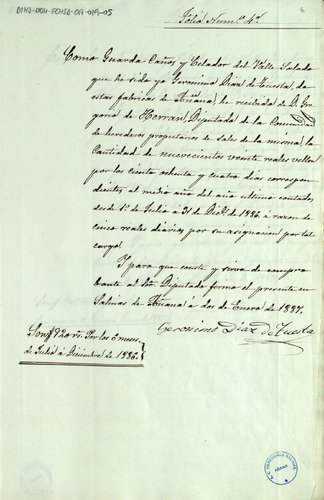 ATHA-DAH-FCHSA-017-019-05
Folio Num.º 4.º
6
Como Guarda Caños y Celador del Valle Salado
que he sido yo Geronimo Diaz de Tuesta, de
estas fabricas de Añana, he recibido de D. Gre-
gorio de Herran, Diputado de la Comunidad
de herederos propietarios de sales de la misma, la
Cantidad de nuevecientos veinte reales vellon
por los ciento ochenta y cuatro dias correspon-
dientes al medio año del año ultimo contados,
desde 1.º de Julio á 31 de Dicbe. de 1886 á razon de
cinco reales diarios por su asignacion por tal
cargo.
Y para que conste y sirva de compro
bante al Sr. Diputado firmo el presente en
Salinas de Añana á dos de Enero de 1887.
Geronimo Diaz de Tuesta
Son 920 rs. Por los 6 meses
de Julio á Diciembre de 1886.
AÑANA